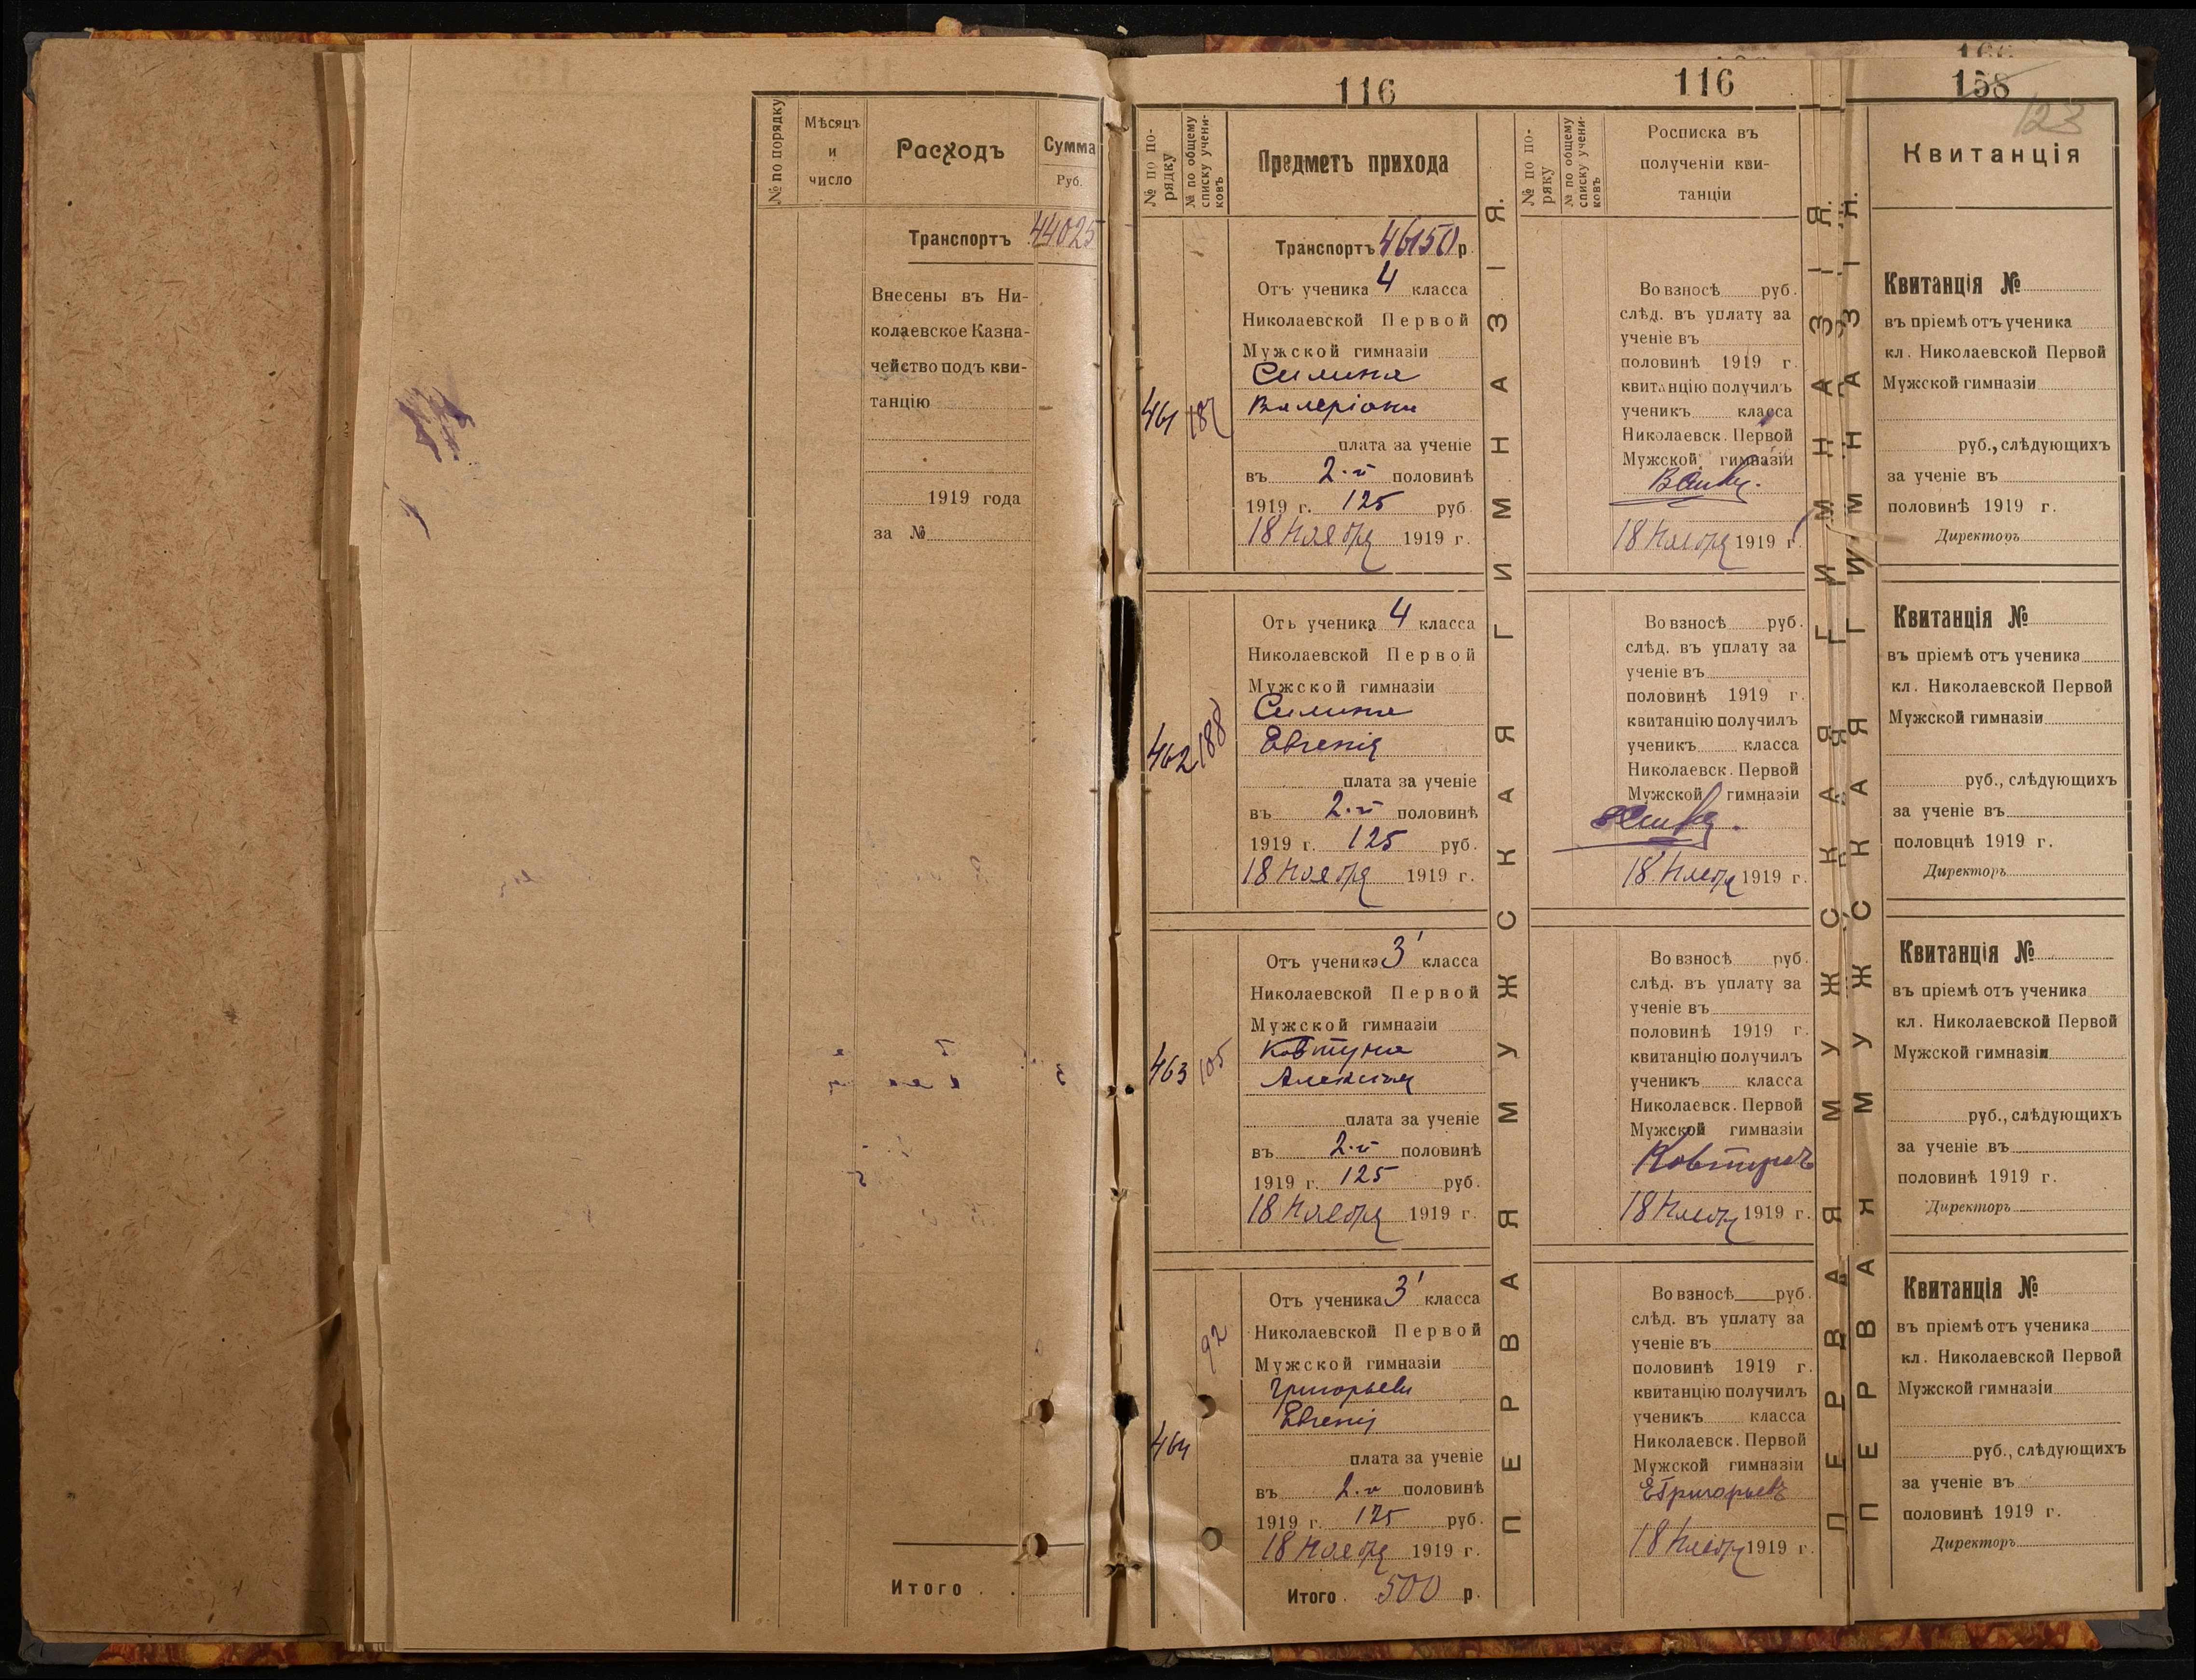 № по порядку
Мѣсяцъ
и
число
Расходъ
Сумма
Руб.
Транспортъ 44025
Внесены въ Ни-
колаевское Казна-
чейство подъ кви-
танцію
1919 года
за №
Итого
116
№ по по-
рядку
№ по общему
списку учени-
ковъ
Предметъ прихода
Транспортъ 46150 р.
Отъ ученика 4 класса
Николаевской Первой
Мужской гимназіи
Силина
461 187 Валеріана
плата за ученіе
въ 2-й половинѣ
1919 г. 125 руб.
18 Ноября 1919 г.
Отъ ученика 4 класса
Николаевской Первой
Мужской гимназіи
Силина
462 188 Евгенія
плата за ученіе
въ 2-й половинѣ
1919 г. 125 руб.
18 Ноября 1919 г.
Отъ ученика 3 класса
Николаевской Первой
Мужской гимназіи
Ковтуна
463 105 Алексѣя
плата за ученіе
въ 2-й половинѣ
1919 г. 125 руб.
18 Ноября 1919 г.
Отъ ученика 3 класса
92 Николаевской Первой
Мужской гимназіи
Григорьева
Евгенія
464 плата за ученіе
въ 2-й половинѣ
1919 г. 125 руб.
18 Ноября 1919 г.
Итого 500 р.
ПЕРВАЯ МУЖСКАЯ ГИМНАЗІЯ.
116
№ по по-
ряку
№ по общему
списку учени-
ковъ
Росписка въ
полученіи кви-
танціи
Во взносѣ руб.
слѣд. въ уплату за
ученіе въ
половинѣ 1919 г.
квитанцію получилъ
ученикъ класса
Николаевск. Первой
Мужской гимназіи
18 Ноября 1919 г.
Во взносѣ руб.
слѣд. въ уплату за
ученіе въ
половинѣ 1919 г.
квитанцію получилъ
ученикъ класса
Николаевск. Первой
Мужской гимназіи
18 Ноября 1919 г.
Во взносѣ руб.
слѣд. въ уплату за
ученіе въ
половинѣ 1919 г.
квитанцію получилъ
ученикъ класса
Николаевск. Первой
Мужской гимназіи
Ковтунъ
18 Ноября 1919 г.
Во взносѣ руб.
слѣд. въ уплату за
ученіе въ
половинѣ 1919 г.
квитанцію получилъ
ученикъ класса
Николаевск. Первой
Мужской гимназіи
ЕГригорьевъ
18 Ноября 1919 г.
ПЕРВАЯ МУЖСКАЯ ГИМНАЗІЯ.
ПЕРВАЯ МУЖСКАЯ ГИМНАЗІЯ.
158
123
Квитанція
Квитанція №
въ пріемѣ отъ ученика
кл. Николаевской Первой
Мужской гимназіи
руб., слѣдующихъ
за ученіе въ
половинѣ 1919 г.
Директоръ
Квитанція №
въ пріемѣ отъ ученика
кл. Николаевской Первой
Мужской гимназіи
руб., слѣдующихъ
за ученіе въ
половцнѣ 1919 г.
Директоръ
Квитанція №
въ пріемѣ отъ ученика
кл. Николаевской Первой
Мужской гимназіи
руб., слѣдующихъ
за ученіе въ
половинѣ 1919 г.
Директоръ
Квитанція №
въ пріемѣ отъ ученика
кл. Николаевской Первой
Мужской гимназіи
руб., слѣдующихъ
за ученіе въ
половинѣ 1919 г.
Директоръ